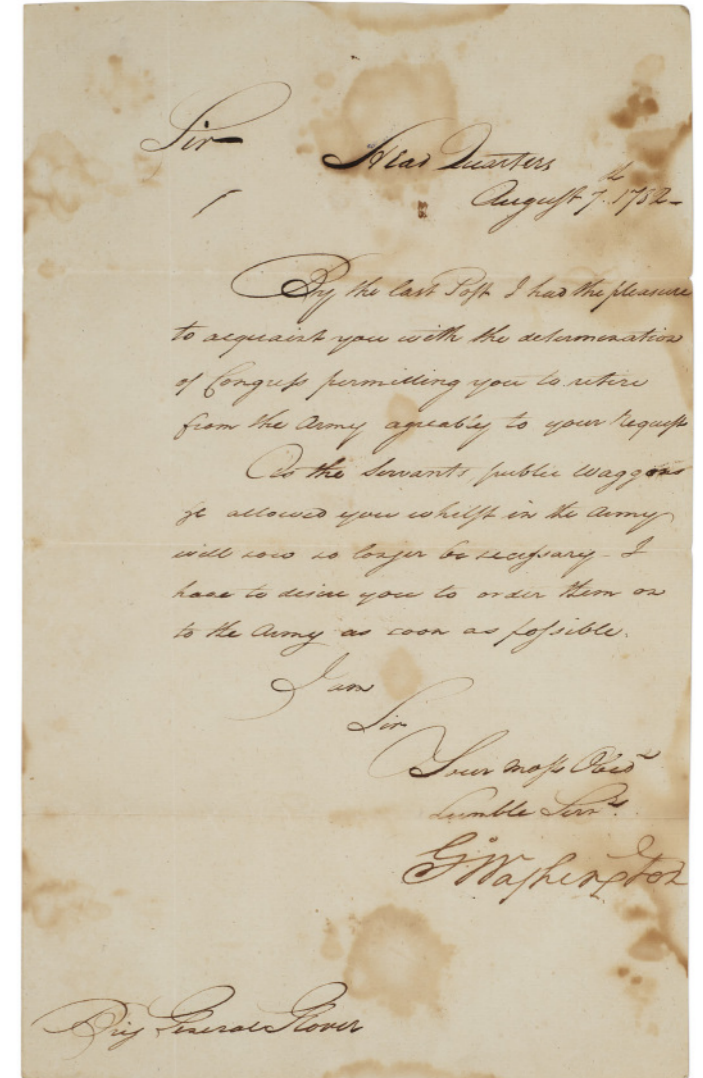 Sir
Head Quarters
August 7th. 1782-
By the last Post I had the pleasure
to acquaint you with the determination
of Congress permitting you to retire
from the Army agreably to your Request
As the Servants, public Waggons
&c allowed you whilst in the Army
will now no longer be necessary - I
have to desire you to order them on
to the Army as soon as possible.
I am
Sir
Your most Obedt
humble Servt.
Go Washington
Brig General Glover